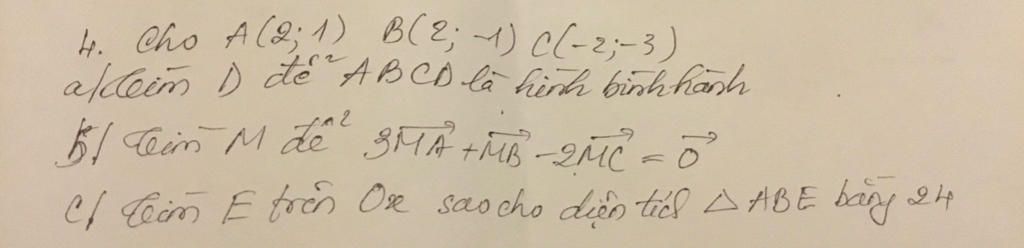 4. Cho A(2; 1) B(2; -1) C(-2; -3)
a/ Tìm D để ABCD là hình bình hành
b/ Tìm M để 3MA + MB - 2MC = 0
c/ Tìm E trên Ox sao cho diện tích △ ABE bằng 24